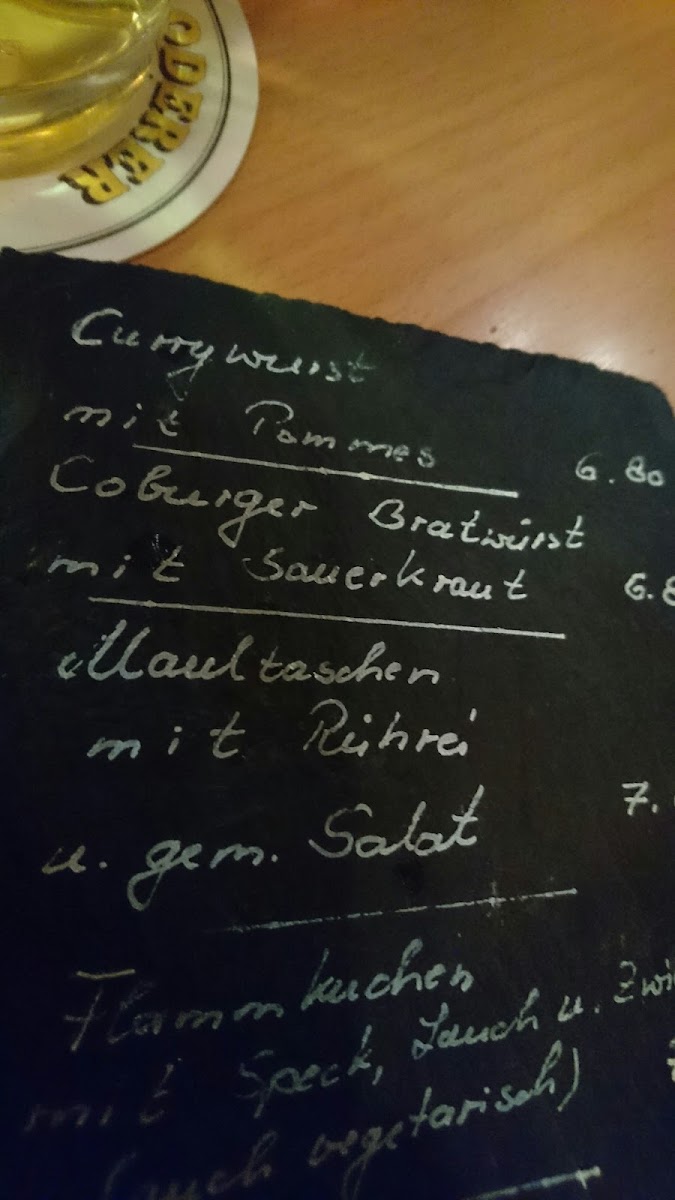 ODERER
Currywurst
mit Pommes 6.80
Coburger Bratwürst
mit Sauerkraut 6.8
Maultaschen
mit Rührei
7.
u. gem. Salat
Flammkuchen
mit Speck, Lauch u. Zwi
(auch vegetarisch)